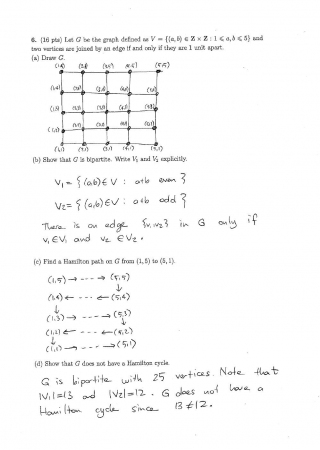 6. (16 pts) Let G be the graph defined as V = {(a, b) ∈ Z × Z : 1 ⩽ a, b ⩽ 5} and
two vertices are joined by an edge if and only if they are 1 unit apart.
(a) Draw G.
(1,5) (2,5) (3,5) (4,5) (5,5)
(1,4) (2,4) (3,4) (4,4) (5,4)
(1,3) (2,3) (3,3) (4,3) (5,3)
(1,2) (2,2) (3,2) (4,2)
(1,1) (2,1) (3,1) (4,1) (5,1)
(b) Show that G is bipartite. Write V₁ and V₂ explicitly.
V₁ = { (a,b) ∈ V : a+b even }
V₂ = { (a,b) ∈ V : a+b odd }
There is an edge {v₁,v₂} in G only if
v₁ ∈ V₁ and v₂ ∈ V₂.
(c) Find a Hamilton path on G from (1, 5) to (5, 1).
(1,5) → --- → (5,5)
↓
(1,4) ← --- ← (5,4)
↓
(1,3) → ---- → (5,3)
↓
(1,2) ← --- ← (5,2)
↓
(1,1) → ---- → (5,1)
(d) Show that G does not have a Hamilton cycle.
G is bipartite with 25 vertices. Note that
|V₁|=13 and |V₂|=12. G does not have a
Hamilton cycle since 13≠12.